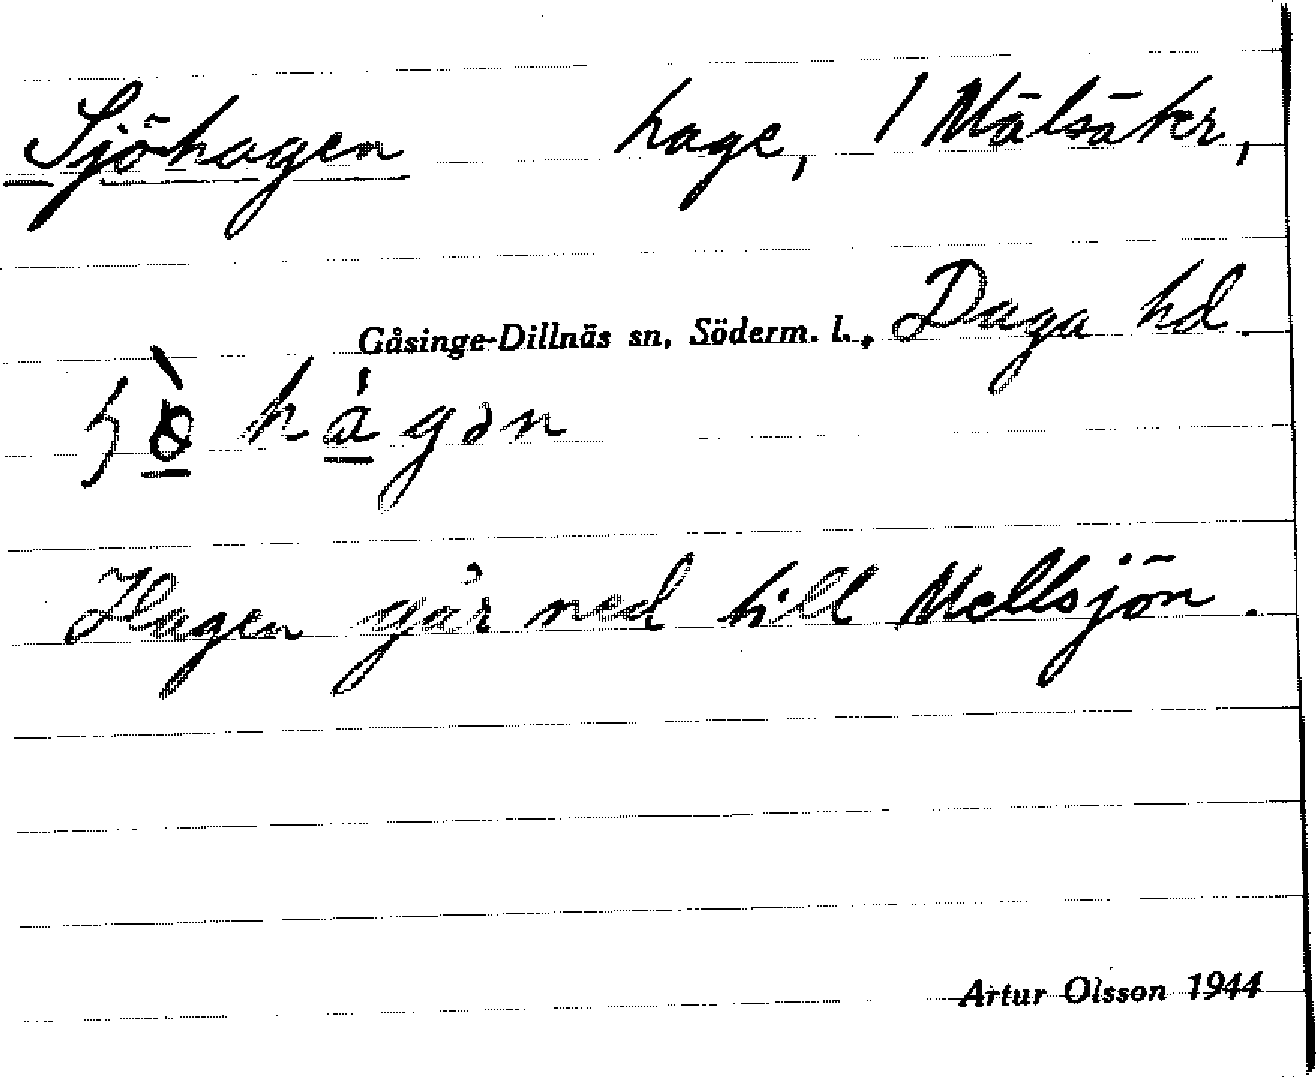 Sjöhagen hage, 1 Mälsäker,
Gåsinge-Dillnäs sn, Söderm. l., Daga hd.
Hagen går ned till Mellsjön.
Artur Olsson 1944